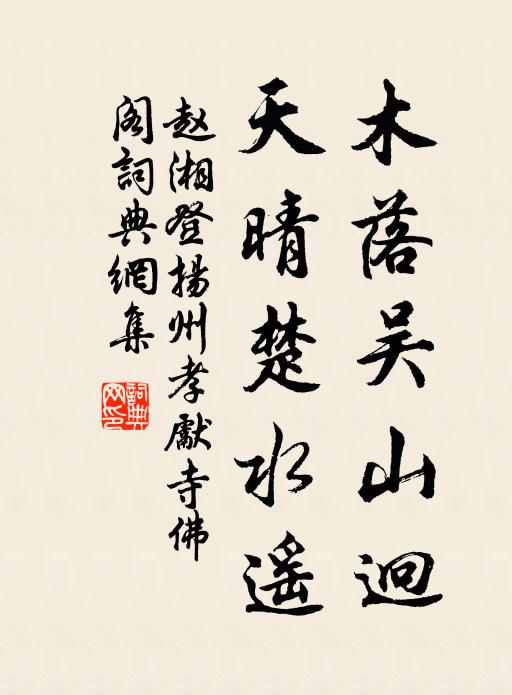 木落吴山迥
天晴楚水遥
赵湘登揚州孝獻寺佛
阁詞典網集
詞典网印